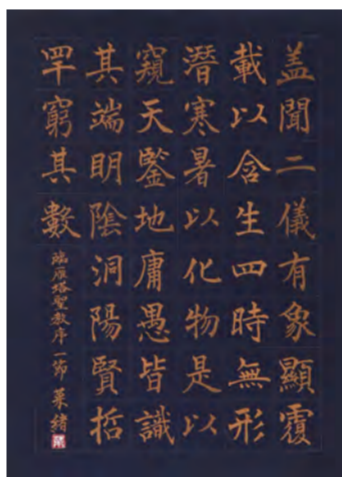 盖聞二儀有象顯覆
載以含生四時無形
潛寒暑以化物是以
窺天鑒地庸愚皆識
其端明陰洞陽賢哲
罕窮其數
臨雁塔聖教序一節